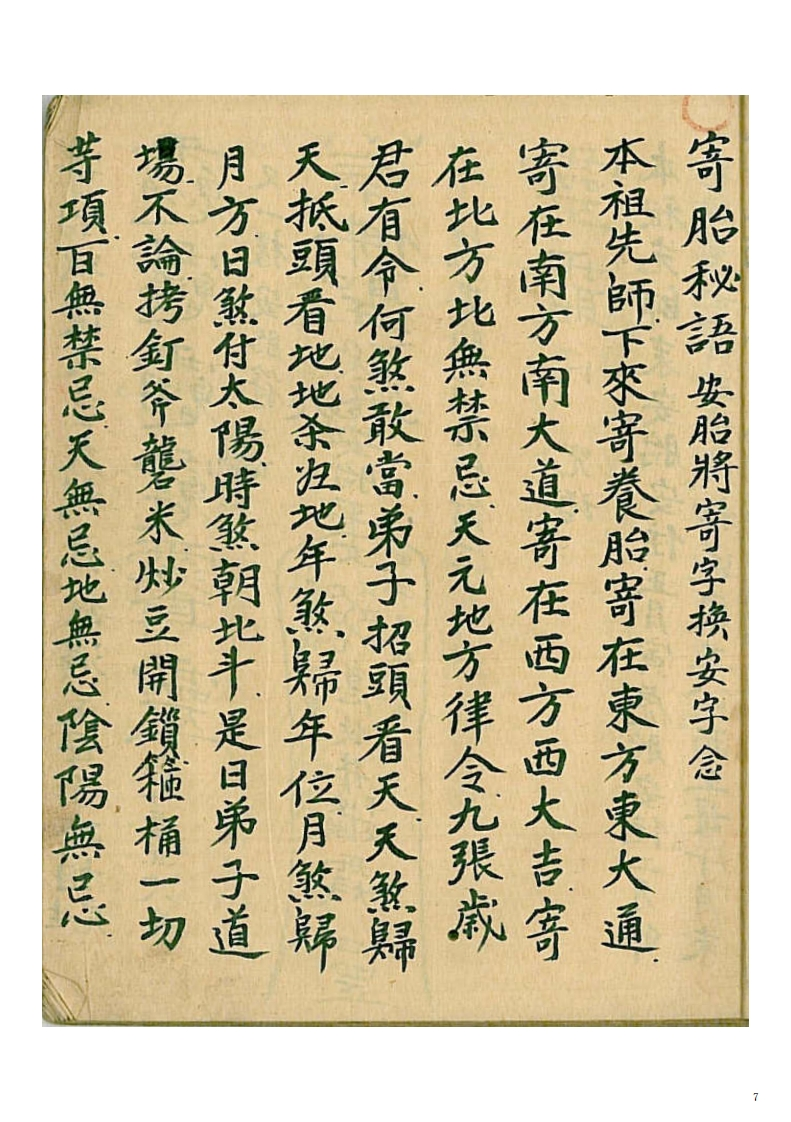 寄胎秘語 安胎將寄字換安字念
本祖先師.下來寄養胎.寄在東方東大通.
寄在南方南大道.寄在西方西大吉.寄
在北方北無禁忌.天元地方律令九張歲
君有令.何煞敢當.弟子招頭看天.天煞歸
天.抵頭看地.地杀归地.年煞歸年位.月煞歸
月方.日煞付太陽.時煞朝北斗.是日弟子道
場.不論拷釘斧礱米炒豆開鎖箍桶一切
等項.百無禁忌.天無忌.地無忌.陰陽無忌.
7